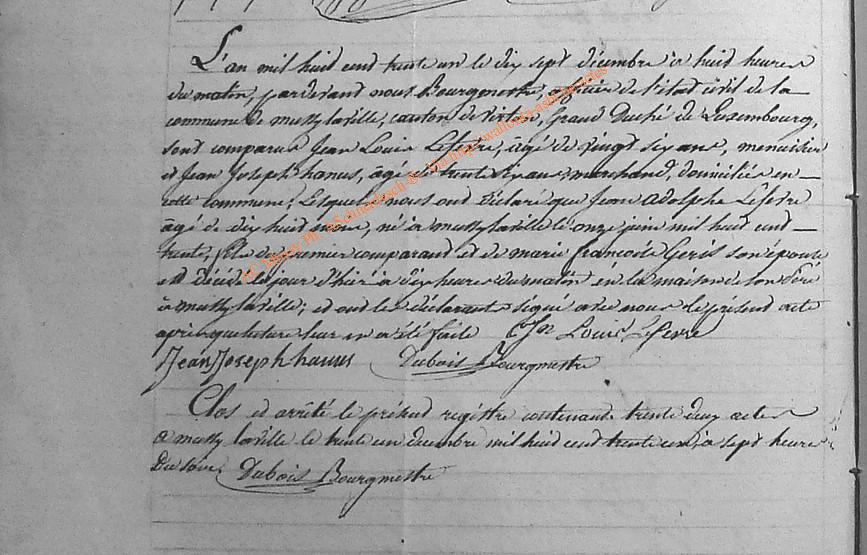 L'an mil huit cent trente un le dix sept décembre à huit heures
du matin, pardevant nous Bourgmestre, officier de l'état civil de la
commune de mussy laville, canton de virton, Grand Duché de Luxembourg,
sont comparus Jean Louis Lefevre, âgé de vingt six ans, menuisier
et Jean Joseph hanus, âgé de trente ans, marchand, domiciliés en
cette commune, Lesquels nous ont déclaré que Jean adolphe Lefevre
âgé de dix huit mois, né à mussy laville le onze juin mil huit cent
trente, fils du premier comparant et de marie francoise Geris son épouse
est décédé le jour d'hier à dix heures du matin en la maison de son Péré
à mussy laville; et ont les déclarants signé avec nous le présent acte
après que lecture leur en a été faite Jn Louis Lefevre
Jean Joseph hanus Dubois Bourgmestre
Clos et arrêté le présent registre contenant trente deux actes
a mussy laville le trente un decembre mil huit cent trente un, à sept heures
Du soir, Dubois Bourgmestre